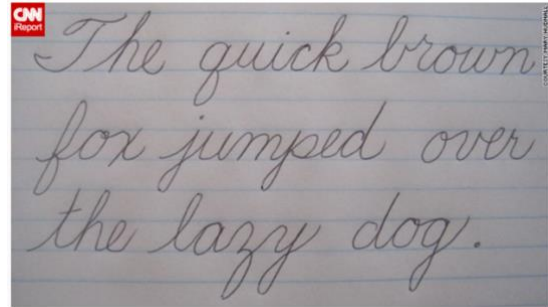 CNN
iReport
The quick brown
fox jumped over
the lazy dog.